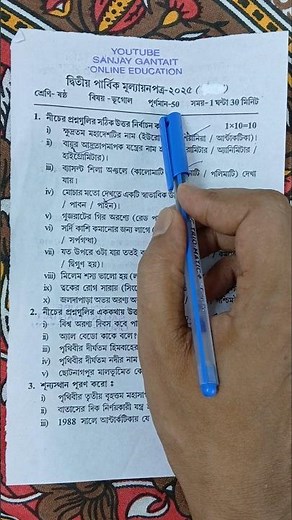 YOUTUBE
SANJAY GANTAIT
ONLINE EDUCATION
দ্বিতীয় পার্বিক মূল্যায়নপত্র-২০২৫ (
শ্রেণি- ষষ্ঠ বিষয় - ভূগোল পূর্ণমান-50 সময়-1 ঘণ্টা 30 মিনিট
1. নীচের প্রশ্নগুলির সঠিক উত্তর নির্বাচন ক 1×10=10
i) ক্ষুদ্রতম মহাদেশটির নাম (ইউরো / আন্টার্কটিকা)।
ii) বায়ুর আদ্রতামাপক যন্ত্রের নাম / অ্যানিমিটার /
হাইগ্রোমিটার)।
iii) ব্যাসল্ট শিলা অঞ্চলে (কালোমাটি / পলিমাটি) দেখা
যায়।
iv) মোচার মতো দেখতে একটি স্বাভাবিক উ
/ পাবন / পাইন)।
v) গুজরাটের গির অরণ্যে (রেড প
vi) সর্দি কাশি কমানোর জন্য লাগে (
/ সর্পগন্ধা)
vii) যত উপরে ওটা যায় ততই ব
/ দ্বিগুণ হয়)।
viii) মিলেম শস্য ভালো হয় (ল
ix) ত্বকের রোগ সারায় (সিংে
x) জলদাপাড়া অভয় অরণ্য অ
2. নীচের প্রশ্নগুলির এককথায় উত্ত
i) বিশ্ব অরণ্য দিবস কবে পা
ii) অ্যাল বেডো কাকে বলে?
iii) পৃথিবীর দীর্ঘতম হিমবাহের
iv) পৃথিবীর দীর্ঘতম নদীর নাম
v) ছোটনাগপুর মালভূমিতে কে
3. শূন্যস্থান পূরণ করো :
i) পৃথিবীর তৃতীয় বৃহত্তম মহাসা
ii) বাতাসের দিক নির্ণয়কারী যন্ত্র
iii) 1988 সালে আন্টার্কটিকায় যে